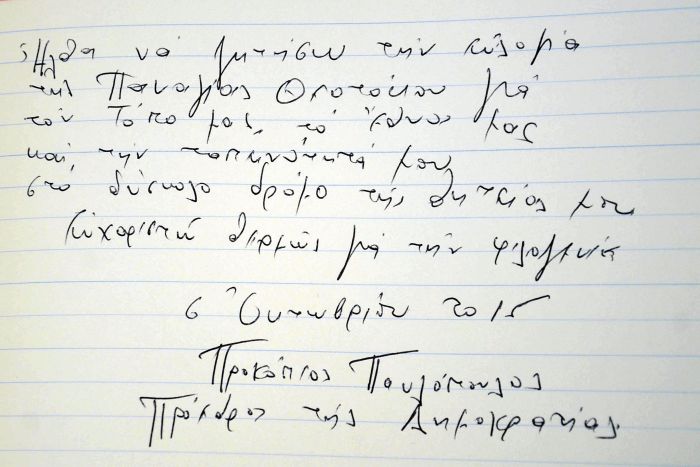 Ἦλθα νά ζητήσω τήν εὐλογία
τῆς Παναγίας Θεοτόκου γιά
τόν Τόπο μας, τό Ἔθνος μας
καί τήν ταπεινότητά μου,
στό δύσκολο δρόμο τῆς θητείας μου
Εὐχαριστῶ θερμῶς γιά τήν φιλοξενία
6 Ὀκτωβρίου 2015
Προκόπιος Παυλόπουλος
Πρόεδρος τῆς Δημοκρατίας.